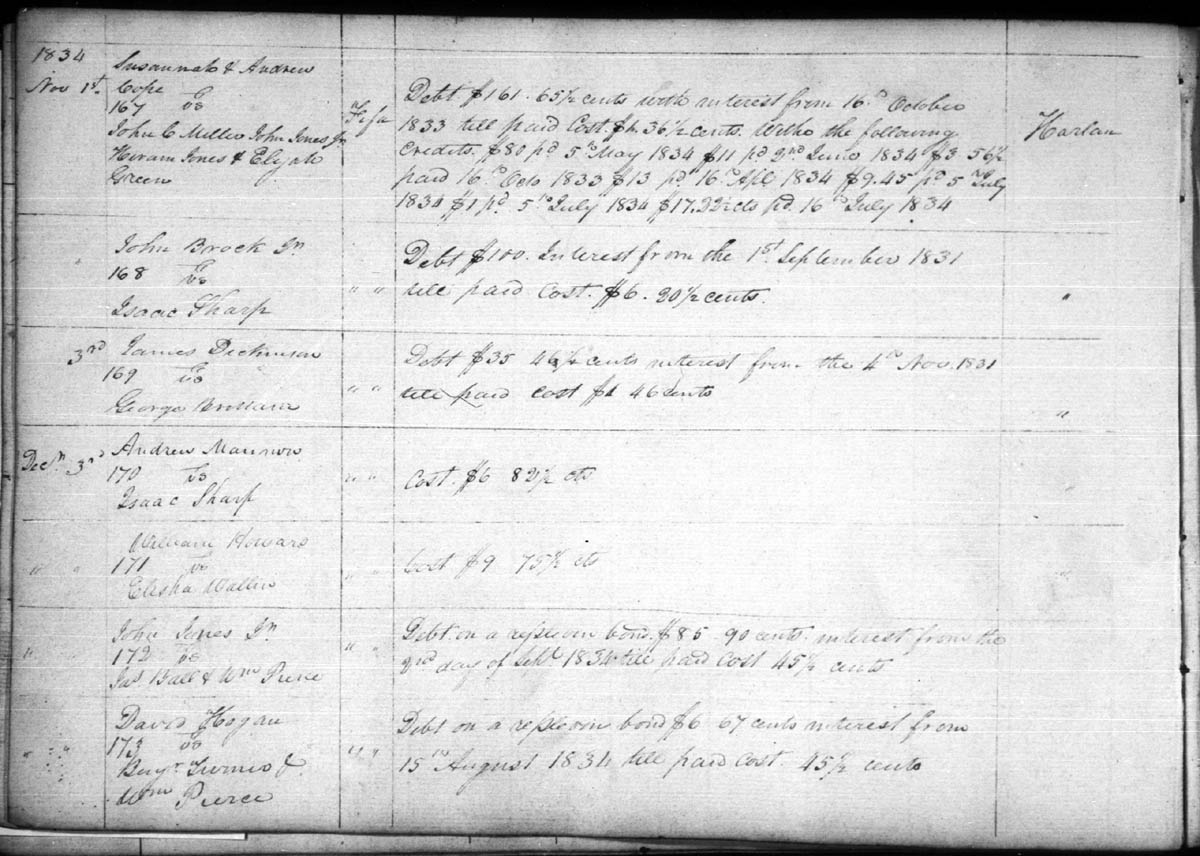 1834
Nov 1st. Susannah & Andrew
Cope
167 vs
John C Miller John Jones Jr
Hiram Jones & Elijah
Green
Fi fa
Debt $161. 65½ cents with interest from 16th October
1833 till paid Cost. 36½ cents. With the following
Credits. $80 pd 5th May 1834 $11 pd 2nd June 1834 $3 56½
paid 16th Octo 1833 $13 pd 16th Apl 1834 $9.45 pd 5th July
1834 $1 pd 5th July 1834 $17. cts pd. 16th July 1834
Harlan
John Brock Jr
168 vs
Isaac Tharp
" "
Debt $100. Interest from the 1st September 1831
till paid Cost. $6. 20½ cents.
"
3rd James Dickinson
169 vs
George
" "
Debt $35 46½ cents interest from the 4th Nov. 1831
till paid cost 46 cents
"
Decr 3rd Andrew
170 vs
Isaac Sharp
" "
Cost. $6 82½ cts
William Howard
" " 171 vs
Elisha Wallin
" "
Cost $9 75½ cts
"
John Jones Jr
" " 172 vs
Jas. Ball & Wm Pierce
" "
Debt on a replevin bond. $85. 90 cents. interest from the
2nd day of Sept 1834 till paid Cost 45½ cents
David Hogan
" " " 173 vs
Benj. &
Wm Pierce
" "
Debt on a replevin bond $6 67 cents interest from
15th August 1834 till paid Cost. 45½ cents